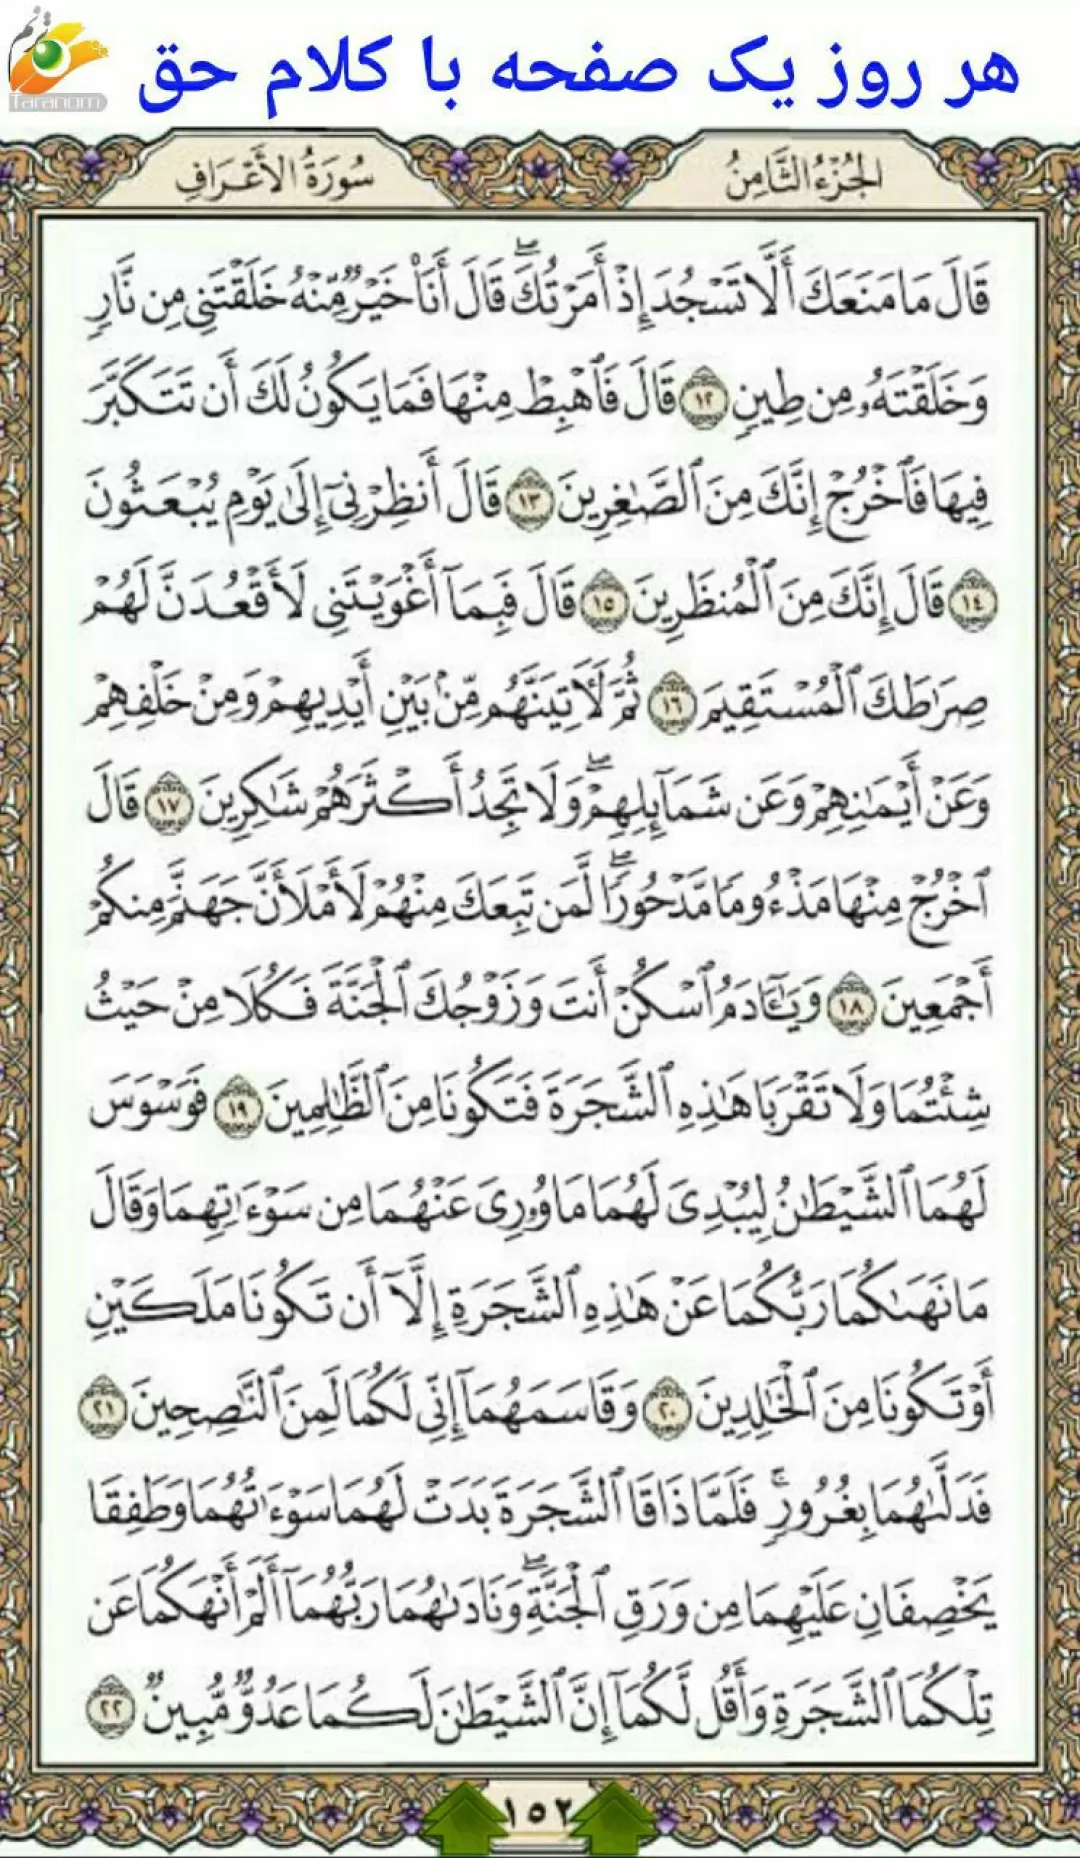 ترنم
Taranom
هر روز یک صفحه با کلام حق
الجُزْءُ الثَّامِنُ
سُورَةُ الأَعْرَافِ
قَالَ مَا مَنَعَكَ أَلَّا تَسْجُدَ إِذْ أَمَرْتُكَ ۖ قَالَ أَنَا۠ خَيْرٌ مِّنْهُ خَلَقْتَنِى مِن نَّارٍ
وَخَلَقْتَهُۥ مِن طِينٍ ١٢ قَالَ فَٱهْبِطْ مِنْهَا فَمَا يَكُونُ لَكَ أَن تَتَكَبَّرَ
فِيهَا فَٱخْرُجْ إِنَّكَ مِنَ ٱلصَّٰغِرِينَ ١٣ قَالَ أَنظِرْنِىٓ إِلَىٰ يَوْمِ يُبْعَثُونَ
١٤ قَالَ إِنَّكَ مِنَ ٱلْمُنظَرِينَ ١٥ قَالَ فَبِمَآ أَغْوَيْتَنِى لَأَقْعُدَنَّ لَهُمْ
صِرَٰطَكَ ٱلْمُسْتَقِيمَ ١٦ ثُمَّ لَءَاتِيَنَّهُم مِّنۢ بَيْنِ أَيْدِيهِمْ وَمِنْ خَلْفِهِمْ
وَعَنْ أَيْمَٰنِهِمْ وَعَن شَمَآئِلِهِمْ ۖ وَلَا تَجِدُ أَكْثَرَهُمْ شَٰكِرِينَ ١٧ قَالَ
ٱخْرُجْ مِنْهَا مَذْءُومًا مَّدْحُورًا ۖ لَّمَن تَبِعَكَ مِنْهُمْ لَأَمْلَأَنَّ جَهَنَّمَ مِنكُمْ
أَجْمَعِينَ ١٨ وَيَٰٓـَٔادَمُ ٱسْكُنْ أَنتَ وَزَوْجُكَ ٱلْجَنَّةَ فَكُلَا مِنْ حَيْثُ
شِئْتُمَا وَلَا تَقْرَبَا هَٰذِهِ ٱلشَّجَرَةَ فَتَكُونَا مِنَ ٱلظَّٰلِمِينَ ١٩ فَوَسْوَسَ
لَهُمَا ٱلشَّيْطَٰنُ لِيُبْدِىَ لَهُمَا مَا وُۥرِىَ عَنْهُمَا مِن سَوْءَٰتِهِمَا وَقَالَ
مَا نَهَىٰكُمَا رَبُّكُمَا عَنْ هَٰذِهِ ٱلشَّجَرَةِ إِلَّآ أَن تَكُونَا مَلَكَيْنِ
أَوْ تَكُونَا مِنَ ٱلْخَٰلِدِينَ ٢٠ وَقَاسَمَهُمَآ إِنِّى لَكُمَا لَمِنَ ٱلنَّٰصِحِينَ ٢١
فَدَلَّىٰهُمَا بِغُرُورٍ ۚ فَلَمَّا ذَاقَا ٱلشَّجَرَةَ بَدَتْ لَهُمَا سَوْءَٰتُهُمَا وَطَفِقَا
يَخْصِفَانِ عَلَيْهِمَا مِن وَرَقِ ٱلْجَنَّةِ ۖ وَنَادَىٰهُمَا رَبُّهُمَآ أَلَمْ أَنْهَكُمَا عَن
تِلْكُمَا ٱلشَّجَرَةِ وَأَقُل لَّكُمَآ إِنَّ ٱلشَّيْطَٰنَ لَكُمَا عَدُوٌّ مُّبِينٌ ٢٢
١٥٢